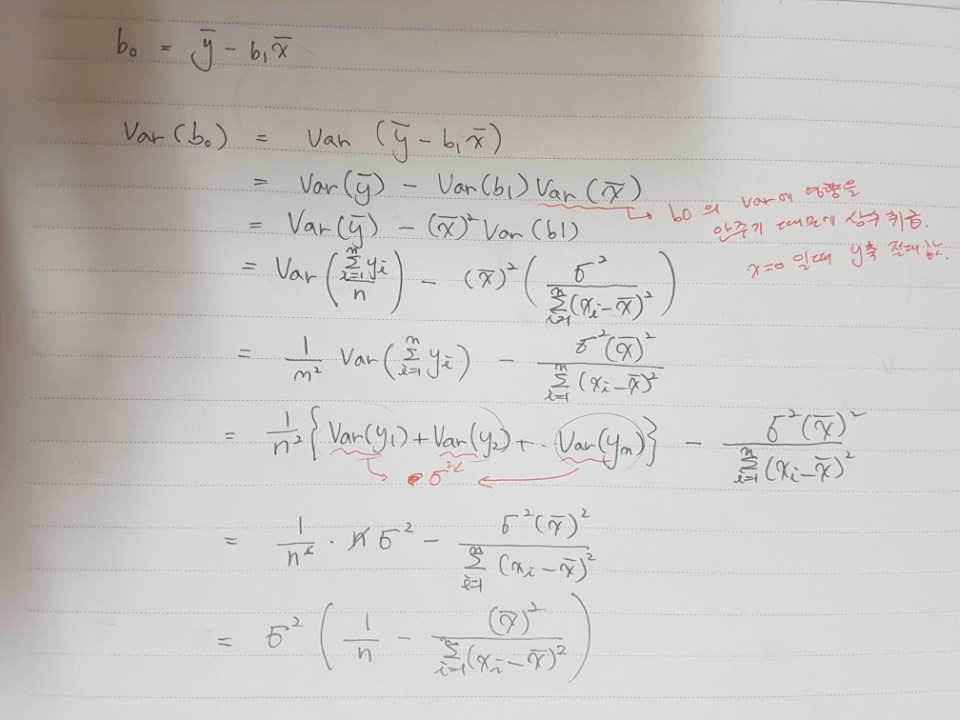 b₀ = ȳ - b₁x̄
Var(b₀) = Var (ȳ - b₁x̄)
= Var(ȳ) - Var(b₁)Var(x̄)
b0 의 var에 영향을
안주기 때문에 상수 취급.
x=0 일때 y축 절대값.
= Var(ȳ) - (x̄)² Var(b1)
= Var(Σᵢ₌₁ⁿ yᵢ / n) - (x̄)² (σ² / Σᵢ₌₁ⁿ(xᵢ-x̄)²)
= 1/n² Var(Σᵢ₌₁ⁿ yᵢ) - σ²(x̄)² / Σᵢ₌₁ⁿ(xᵢ-x̄)²
= 1/n² {Var(y₁)+Var(y₂)+..Var(yₙ)} - σ²(x̄)² / Σᵢ₌₁ⁿ(xᵢ-x̄)²
σ²
= 1/n² · nσ² - σ²(x̄)² / Σᵢ₌₁ⁿ(xᵢ-x̄)²
= σ² (1/n - (x̄)² / Σᵢ₌₁ⁿ(xᵢ-x̄)²)